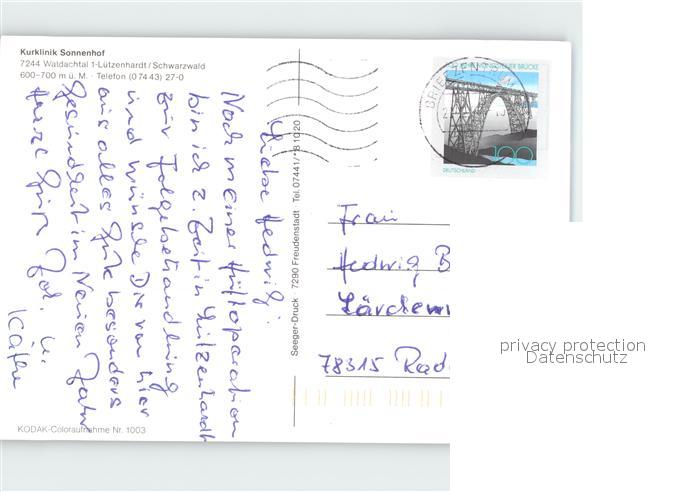 Kurklinik Sonnenhof
7244 Waldachtal 1-Lützenhardt/Schwarzwald
600–700 m ü. M. · Telefon (0 74 43) 27-0
Liebe Hedwig!
Nach meiner Hüftoperation
bin ich z. Zeit in Lützenhardt
zur Folgebehandlung
und wünsche Dir von hier
aus alles Gute besonders
Gesundheit im Neuen Jahr
Herzl. Grüße
Käthe
KODAK-Coloraufnahme Nr. 1003
Seeger-Druck · 7290 Freudenstadt · Tel. 07441/*8 10 20
BRÜCKE
BRIEFZENTRUM
100
DEUTSCHLAND
Frau
Hedwig B
Lärchenw
78315 Rad
privacy protection
Datenschutz